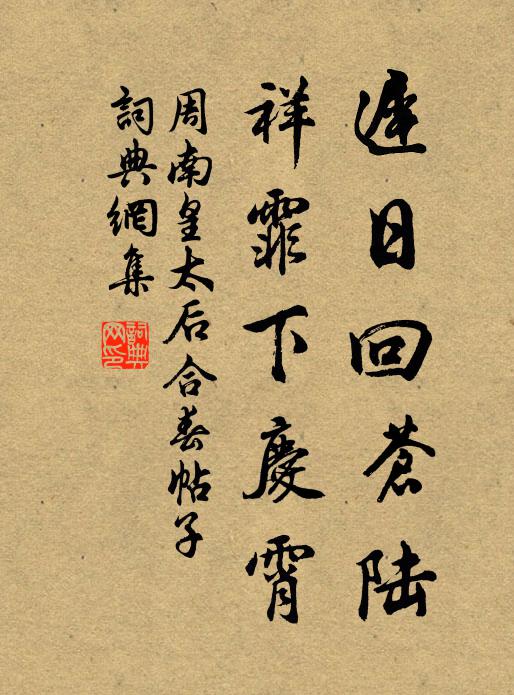 遅日回蒼陆
祥霏下慶霄
周南皇太后合春帖子
詞典網集
詞典网印